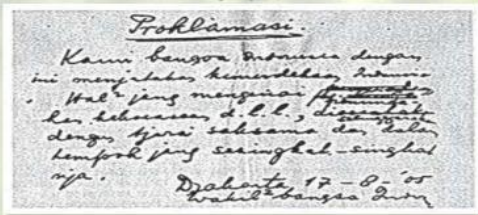 Proklamasi.
Kami bangsa Indonesia dengan
ini menjatakan kemerdekaan Indonesia
. Hal² jang mengenai
kekoeasaan d.l.l.,
dengan tjara saksama dan dalam
tempoh jang sesingkat-singkat
nja.
Djakarta 17 - 8 - '05
Wakil² bangsa Indon